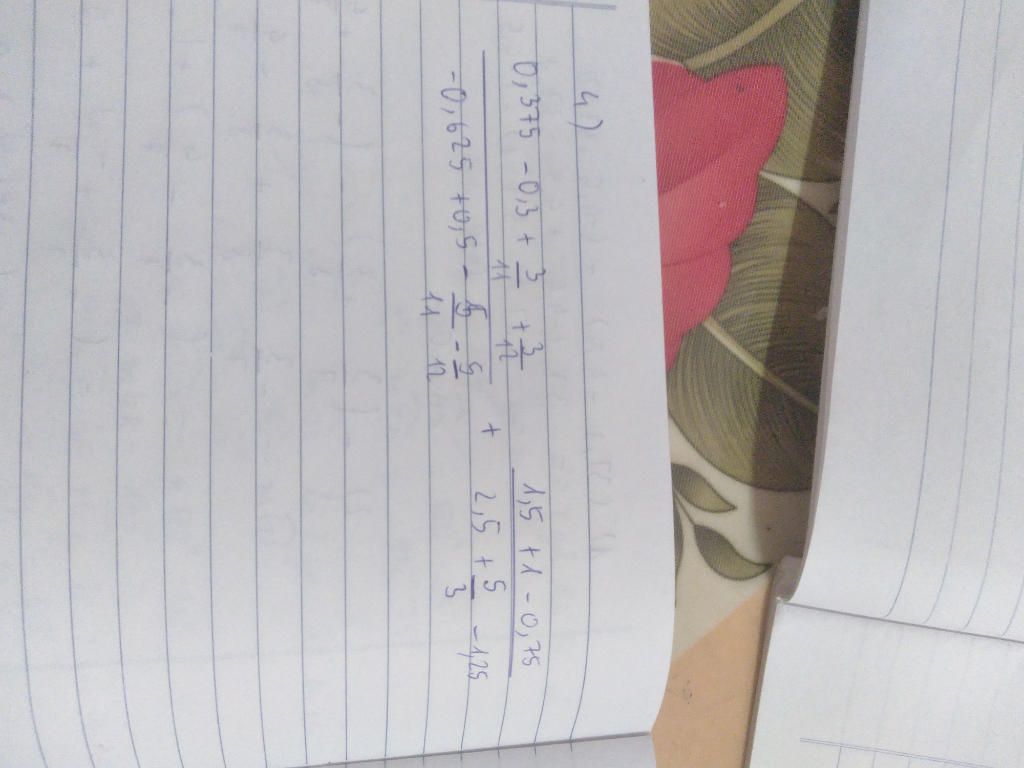 4)
0,375 - 0,3 + 3/11 + 3/12
-0,625 + 0,5 - 5/11 - 5/12
+
1,5 + 1 - 0,75
2,5 + 5/3 - 1,25